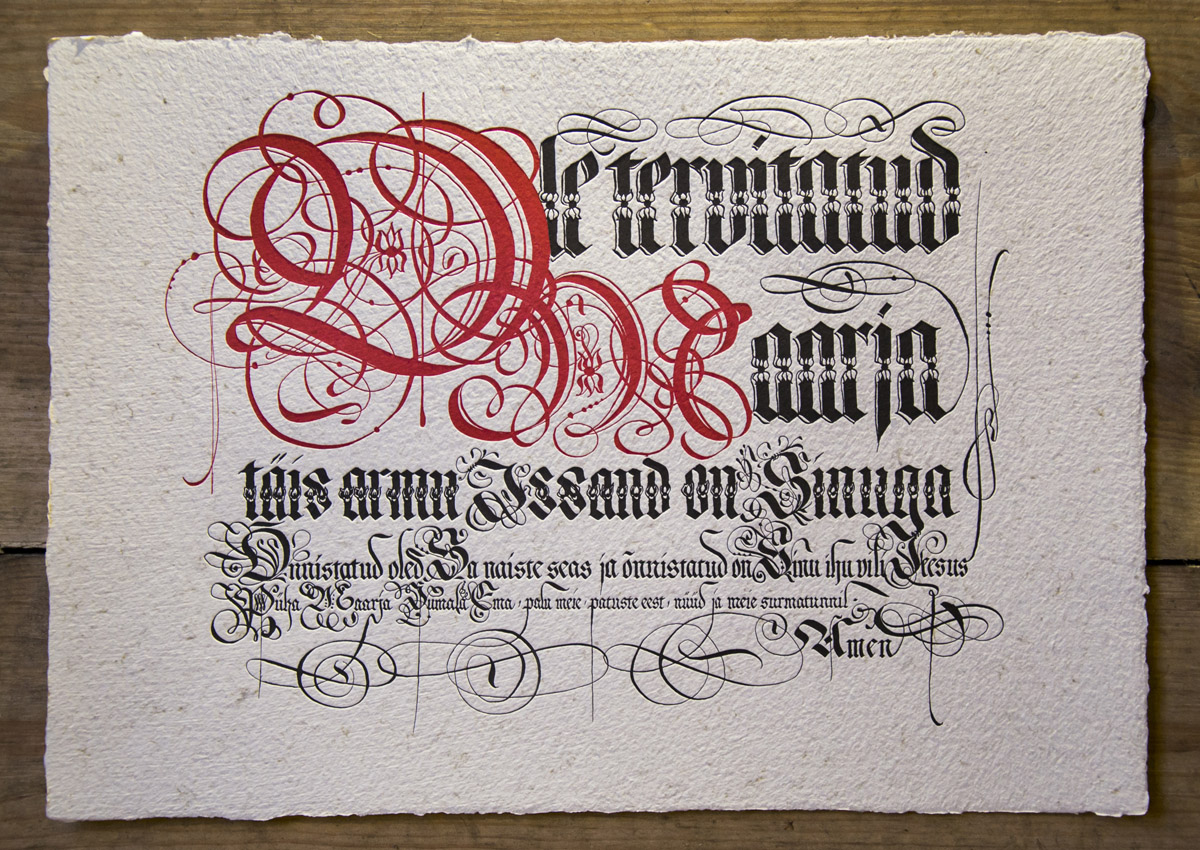 Ole tervitatud
Maarja
täis armu Issand on Sinuga
Õnnistatud oled Sa naiste seas ja õnnistatud on Sinu ihu vili Jeesus
Püha Maarja Jumala Ema, palu meie, patuste eest, nüüd ja meie surmatunnil.
Amen